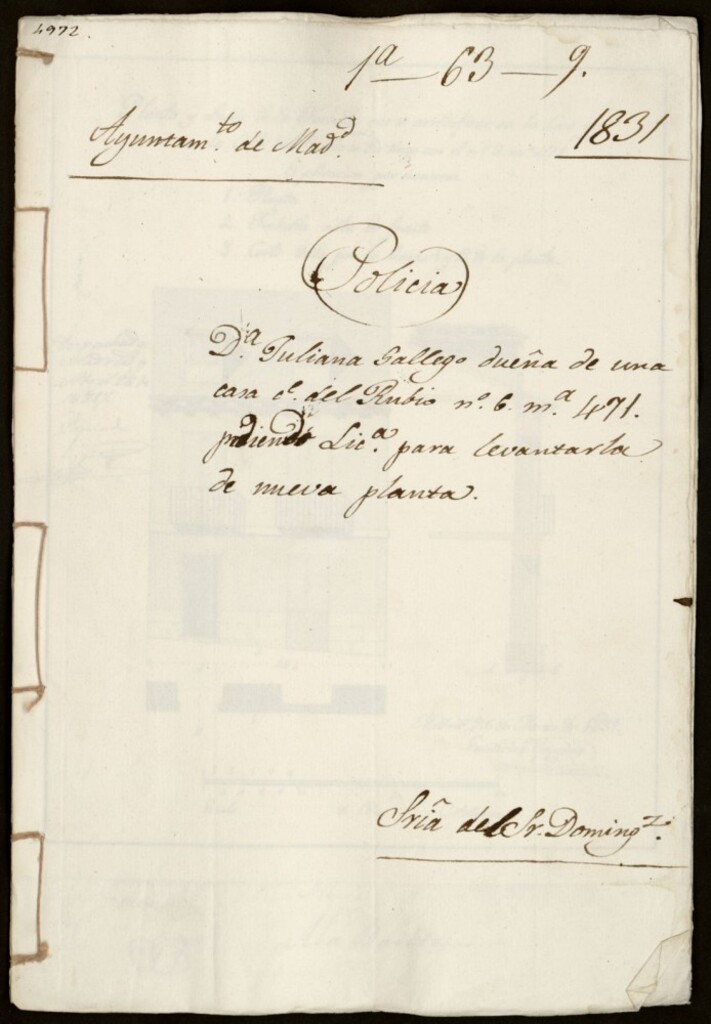 4972.
1ª — 63 — 9.
Ayuntam.to de Mad.d
1831
Policia
D.ª Juliana Gallego dueña de una
casa c.e del Rubio n.º 6. m.ª 471.
pidiendo Lic.ª para levantarla
de nueva planta.
Sriã del Sr. Doming.z